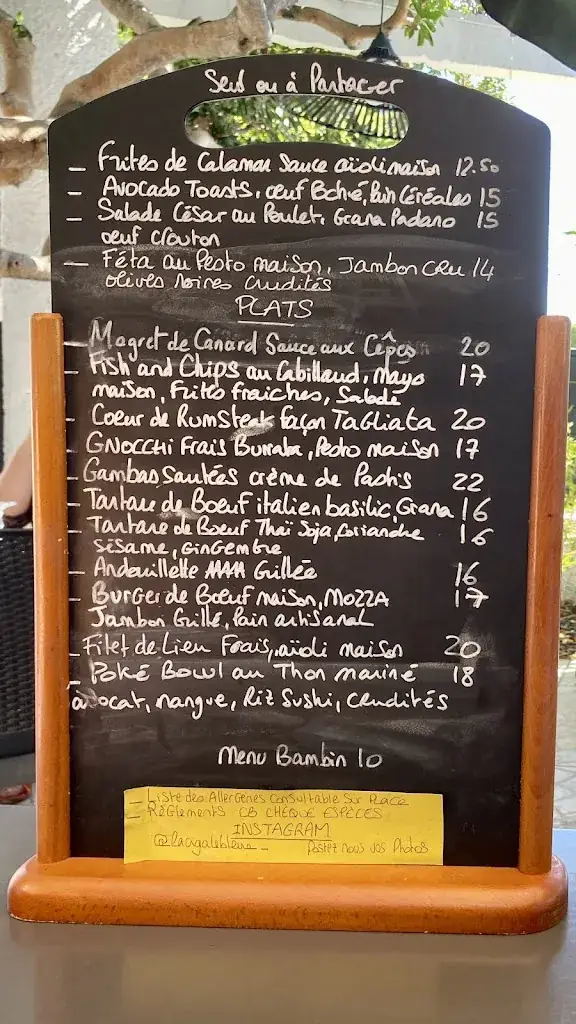 Seul ou à Partager
- Frites de Calamar Sauce aïoli maison 12.50
- Avocado Toasts, œuf Poché, Pain Céréales 15
- Salade César au Poulet, Grana Padano 15
œuf crouton
- Féta au Pesto maison, Jambon cru 14
olives noires crudités
PLATS
- Magret de Canard Sauce aux Cêpes 20
- Fish and Chips au Cabillaud, Mayo 17
maison, Frites fraiches, Salade
- Coeur de Rumsteak façon TAGLIATA 20
- GNOCCHI Frais Burrata, Pesto maison 17
- Gambas Sautées crème de Pastis 22
- Tartare de Boeuf italien basilic Grana 16
- Tartare de Boeuf Thaï Soja, Coriandre 16
Sésame, Gingembre
- Andouillette AAAAA Grillée 16
- Burger de Boeuf maison, Mozza 17
Jambon Grillé, Pain artisanal
- Filet de Lieu Frais, aïoli maison 20
- Poké Bowl au Thon mariné 18
avocat, mangue, Riz Sushi, crudités
Menu Bambin 10
- Liste des Allergenes consultable sur Place
- Règlements CB CHEQUE ESPÈCES
INSTAGRAM
Postez nous vos Photos